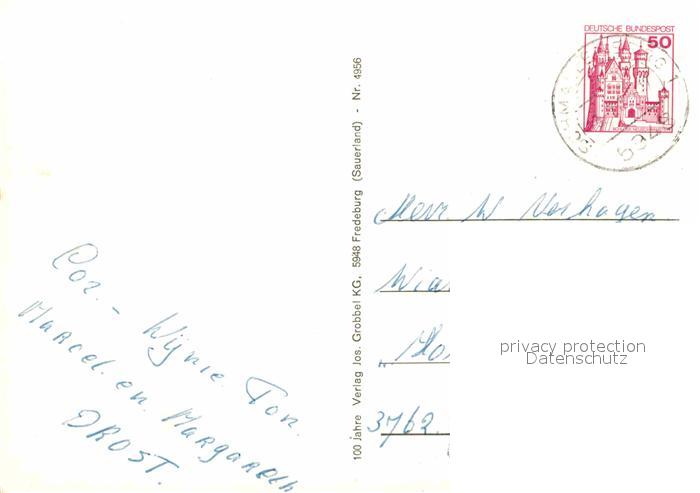 DEUTSCHE BUNDESPOST
50
100 Jahre Verlag Jos. Grobbel KG, 5948 Fredeburg (Sauerland) - Nr. 4956
Mevr. W Verhagen
Wia
Ho
3762.
privacy protection
Datenschutz
Cor. - Wijnie. Ton.
Marcel. en. Margareth
DROST.